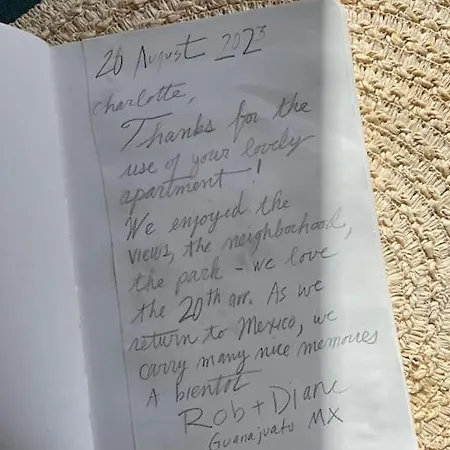 26 August 2023
Charlotte,
Thanks for the
use of your lovely
apartment!
We enjoyed the
views, the neighborhood,
the park - we love
the 20th arr. As we
return to Mexico, we
carry many nice memories
A bientot
Rob + Diane
Guanajuato MX